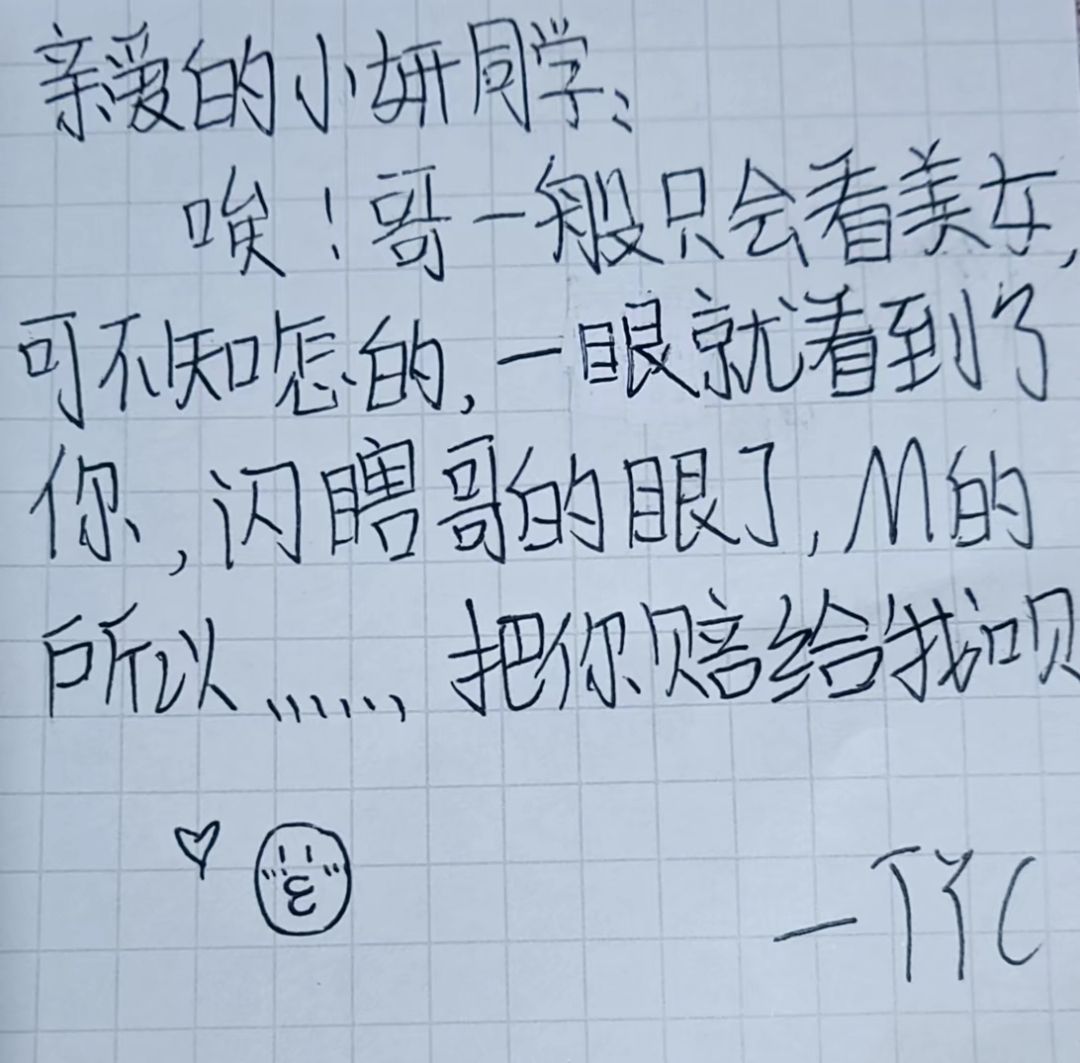 亲爱的小妍同学:
唉！哥一般只会看美女,
可不知怎的,一眼就看到了
你,闪瞎哥的眼了,M的
所以......把你赔给我呗
—TYC